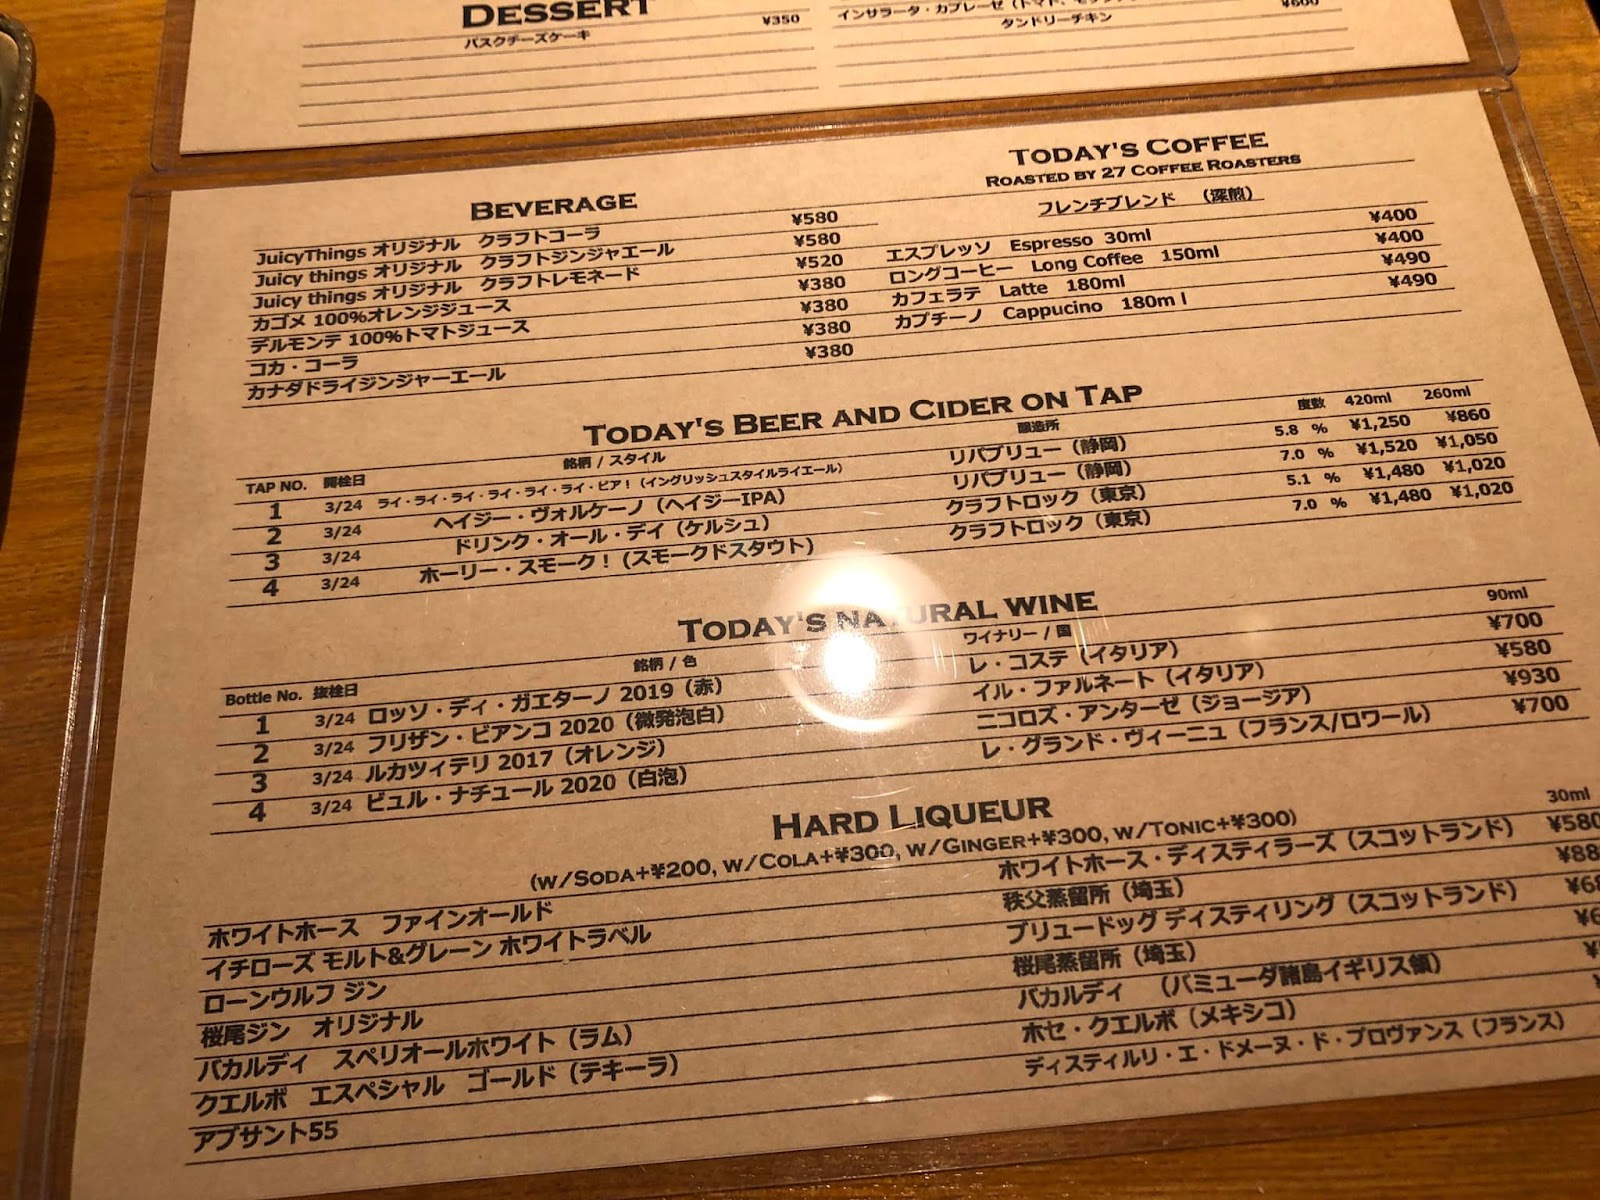 DESSERT
バスクチーズケーキ ¥350
インサラータ・カプレーゼ（トマト、モッツァ
タンドリーチキン ¥600
BEVERAGE
JuicyThings オリジナル クラフトコーラ ¥580
Juicy things オリジナル クラフトジンジャエール ¥580
Juicy things オリジナル クラフトレモネード ¥520
カゴメ 100%オレンジジュース ¥380
デルモンテ 100%トマトジュース ¥380
コカ・コーラ ¥380
カナダドライジンジャーエール ¥380
TODAY'S COFFEE
ROASTED BY 27 COFFEE ROASTERS
フレンチブレンド （深煎）
エスプレッソ Espresso 30ml ¥400
ロングコーヒー Long Coffee 150ml ¥400
カフェラテ Latte 180ml ¥490
カプチーノ Cappucino 180ml ¥490
TODAY'S BEER AND CIDER ON TAP
TAP NO. 開栓日 銘柄 / スタイル 醸造所 度数 420ml 260ml
1 3/24 ライ・ライ・ライ・ライ・ライ・ライ・ビア！（イングリッシュスタイルライエール） リパブリュー（静岡） 5.8 % ¥1,250 ¥860
2 3/24 ヘイジー・ヴォルケーノ（ヘイジーIPA） リパブリュー（静岡） 7.0 % ¥1,520 ¥1,050
3 3/24 ドリンク・オール・デイ（ケルシュ） クラフトロック（東京） 5.1 % ¥1,480 ¥1,020
4 3/24 ホーリー・スモーク！（スモークドスタウト） クラフトロック（東京） 7.0 % ¥1,480 ¥1,020
TODAY'S NATURAL WINE
Bottle No. 抜栓日 銘柄 / 色 ワイナリー / 国 90ml
1 3/24 ロッソ・ディ・ガエターノ 2019（赤） レ・コステ（イタリア） ¥700
2 3/24 フリザン・ビアンコ 2020（微発泡白） イル・ファルネート（イタリア） ¥580
3 3/24 ルカツィテリ 2017（オレンジ） ニコロズ・アンターゼ（ジョージア） ¥930
4 3/24 ビュル・ナチュール 2020（白泡） レ・グランド・ヴィーニュ（フランス/ロワール） ¥700
HARD LIQUEUR
(W/SODA+¥200, W/COLA+¥300, W/GINGER+¥300, W/TONIC+¥300) 30ml
ホワイトホース ファインオールド ホワイトホース・ディスティラーズ（スコットランド） ¥580
イチローズ モルト&グレーン ホワイトラベル 秩父蒸留所（埼玉） ¥88
ローンウルフ ジン ブリュードッグ ディスティリング（スコットランド） ¥68
桜尾ジン オリジナル 桜尾蒸留所（埼玉） ¥6
バカルディ スペリオールホワイト（ラム） バカルディ （バミューダ諸島イギリス領） ¥
クエルボ エスペシャル ゴールド（テキーラ） ホセ・クエルボ（メキシコ）
アブサント55 ディスティルリ・エ・ドメーヌ・ド・プロヴァンス（フランス）